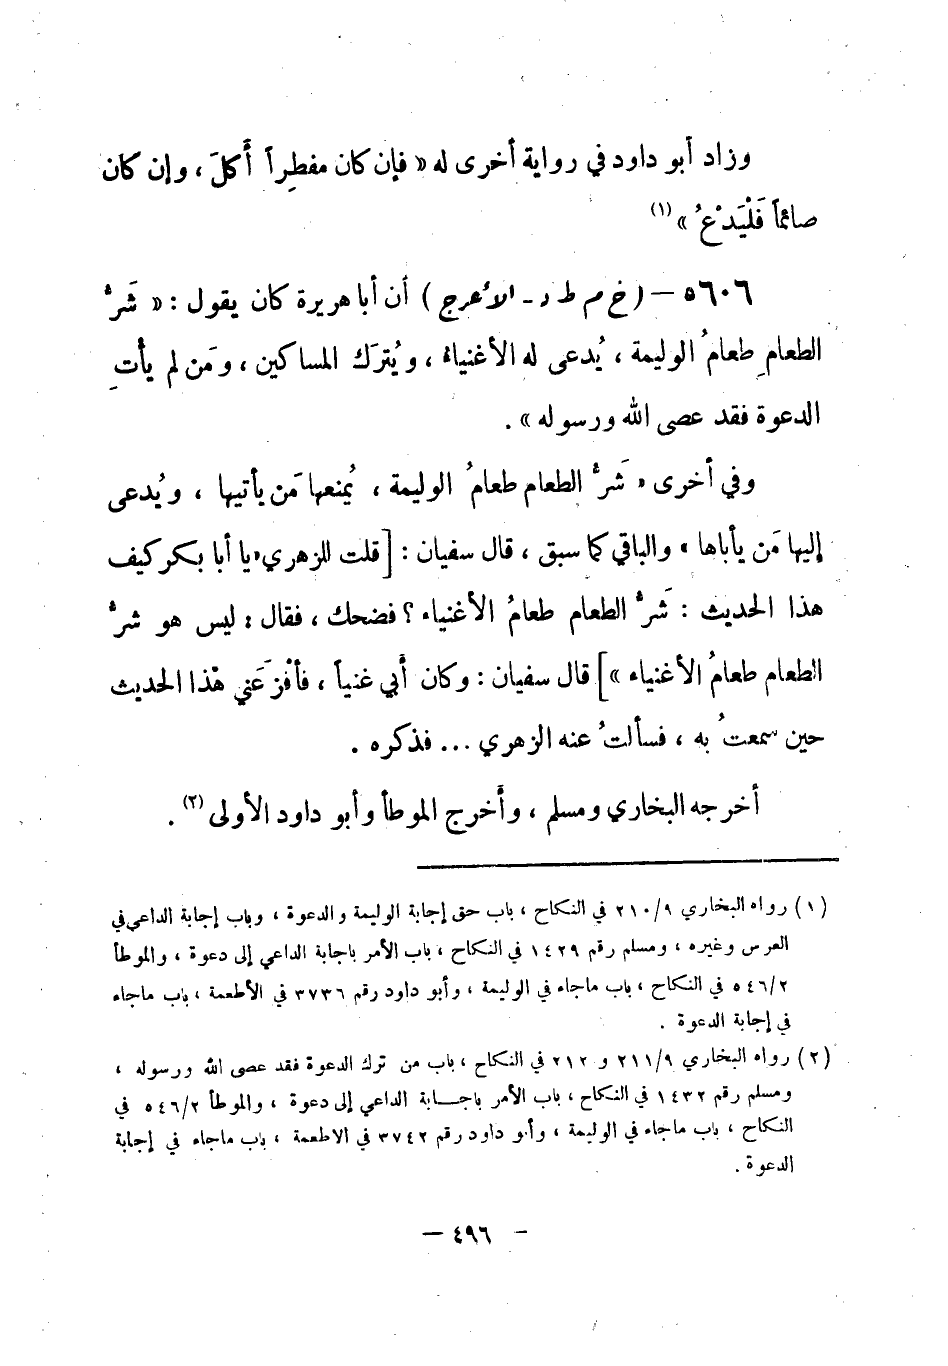 وزاد أبو داود في رواية أخرى له « فإن كان مفطِراً أَكلَ ، وإن كان
صائماً فَلْيَدْعُ » (١)
٥٦٠٦ – ( خ م ط د ـ الأعرج ) أن أبا هريرة كان يقول : « شَرُّ
الطعامِ طعامُ الوليمة ، يُدعى له الأغنياءُ ، ويُترَك المساكين ، ومَن لم يأْتِ
الدعوة فقد عصى الله ورسوله » .
وفي أخرى « شَرُّ الطعام طعامُ الوليمة ، يُمنعها مَن يأتيها ، ويُدعى
إليها مَن يأباها » والباقي كما سبق ، قال سفيان : [ قلت للزهري « يا أبا بكر كيف
هذا الحديث : شَرُّ الطعام طعامُ الأغنياء ؟ فضحك ، فقال : ليس هو شرُّ
الطعام طعامُ الأغنياء » ] قال سفيان : وكان أبي غنياً ، فأفْزَعَني هٰذا الحديث
حين سمعتُ به ، فسألتُ عنه الزهري ... فذكره .
أخرجه البخاري ومسلم ، وأخرج الموطأ وأبو داود الأولى (٢) .
(١) رواه البخاري ٩/ ٢١٠ في النكاح ، باب حق إجابة الوليمة والدعوة ، وباب إجابة الداعي في
العرس وغيره ، ومسلم رقم ١٤٢٩ في النكاح ، باب الأمر باجابة الداعي إلى دعوة ، والموطأ
٢/ ٥٤٦ في النكاح ، باب ماجاء في الوليمة ، وأبو داود رقم ٣٧٣٦ في الأطعمة ، باب ماجاء
في إجابة الدعوة .
(٢) رواه البخاري ٩/ ٢١١ و ٢١٢ في النكاح ، باب من ترك الدعوة فقد عصى الله ورسوله ،
ومسلم رقم ١٤٣٢ في النكاح ، باب الأمر باجـابة الداعي إلى دعوة ، والموطأ ٢/ ٥٤٦ في
النكاح ، باب ماجاء في الوليمة ، وأبو داود رقم ٣٧٤٢ في الاطعمة ، باب ماجاء في إجابة
الدعوة .
- ٤٩٦ —